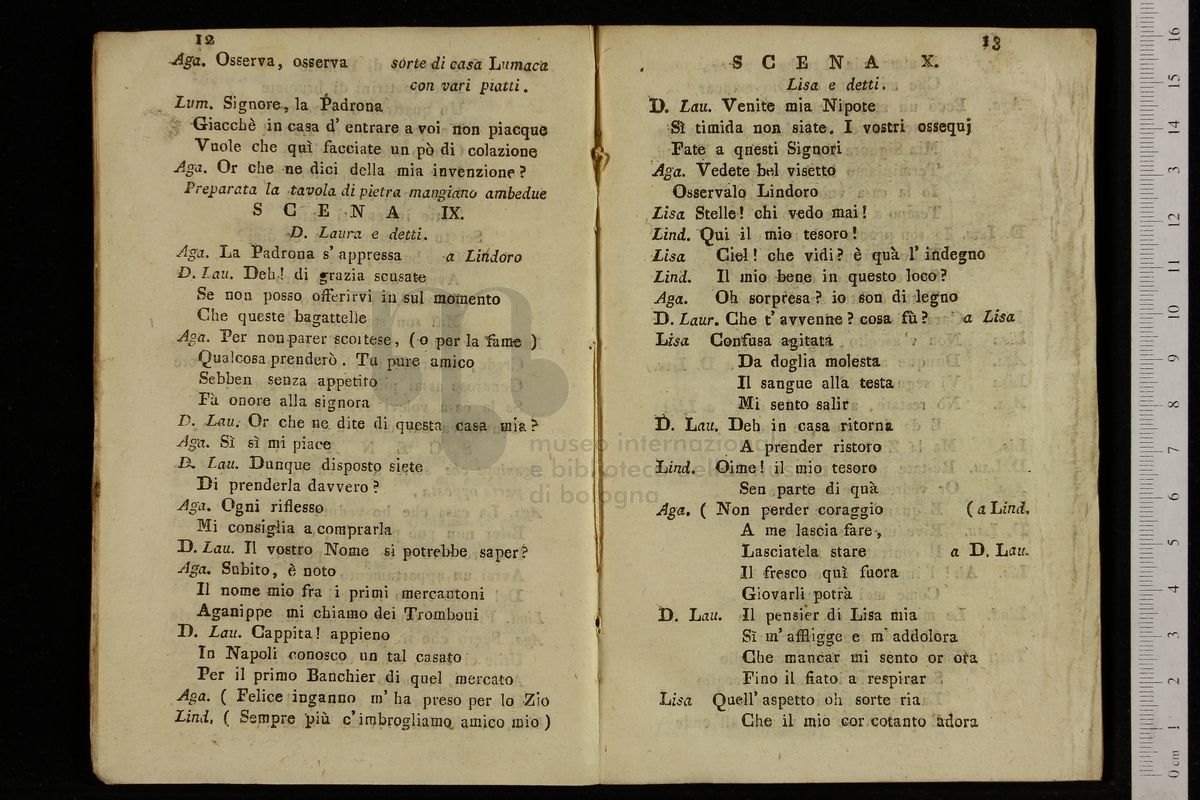 12
Aga. Osserva, osserva sorte di casa Lumaca
con vari piatti.
Lum. Signore, la Padrona
Giacchè in casa d' entrare a voi non piacque
Vuole che quì facciate un pò di colazione
Aga. Or che ne dici della mia invenzione?
Preparata la tavola di pietra mangiano ambedue
S C E N A IX.
D. Laura e detti.
Aga. La Padrona s' appressa a Lindoro
D. Lau. Deh! di grazia scusate
Se non posso offerirvi in sul momento
Che queste bagattelle
Aga. Per non parer scortese, (o per la fame)
Qualcosa prenderò. Tu pure amico
Sebben senza appetito
Fà onore alla signora
D. Lau. Or che ne dite di questa casa mia?
Aga. Sì sì mi piace
D. Lau. Dunque disposto siete
Di prenderla davvero?
Aga. Ogni riflesso
Mi consiglia a comprarla
D. Lau. Il vostro Nome si potrebbe saper?
Aga. Subito, è noto
Il nome mio fra i primi mercantoni
Aganippe mi chiamo dei Tromboni
D. Lau. Cappita! appieno
In Napoli conosco un tal casato
Per il primo Banchier di quel mercato
Aga. ( Felice inganno m' ha preso per lo Zio
Lind. ( Sempre più c' imbrogliamo amico mio )
13
S C E N A X.
Lisa e detti.
D. Lau. Venite mia Nipote
Sì timida non siate. I vostri ossequj
Fate a questi Signori
Aga. Vedete bel visetto
Osservalo Lindoro
Lisa Stelle! chi vedo mai!
Lind. Qui il mio tesoro!
Lisa Ciel! che vidi? è quà l' indegno
Lind. Il mio bene in questo loco?
Aga. Oh sorpresa? io son di legno
D. Laur. Che t' avvenne? cosa fù? a Lisa
Lisa Confusa agitata
Da doglia molesta
Il sangue alla testa
Mi sento salir
D. Lau. Deh in casa ritorna
A prender ristoro
Lind. Oime! il mio tesoro
Sen parte di quà
Aga. ( Non perder coraggio (a Lind.
A me lascia fare,
Lasciatela stare a D. Lau.
Il fresco quì fuora
Giovarli potrà
D. Lau. Il pensier di Lisa mia
Sì m' affligge e m' addolora
Che mancar mi sento or ora
Fino il fiato a respirar
Lisa Quell' aspetto oh sorte ria
Che il mio cor cotanto adora
museo internazionale
e biblioteca della musica
di bologna
0 cm 1 2 3 4 5 6 7 8 9 10 11 12 13 14 15 16